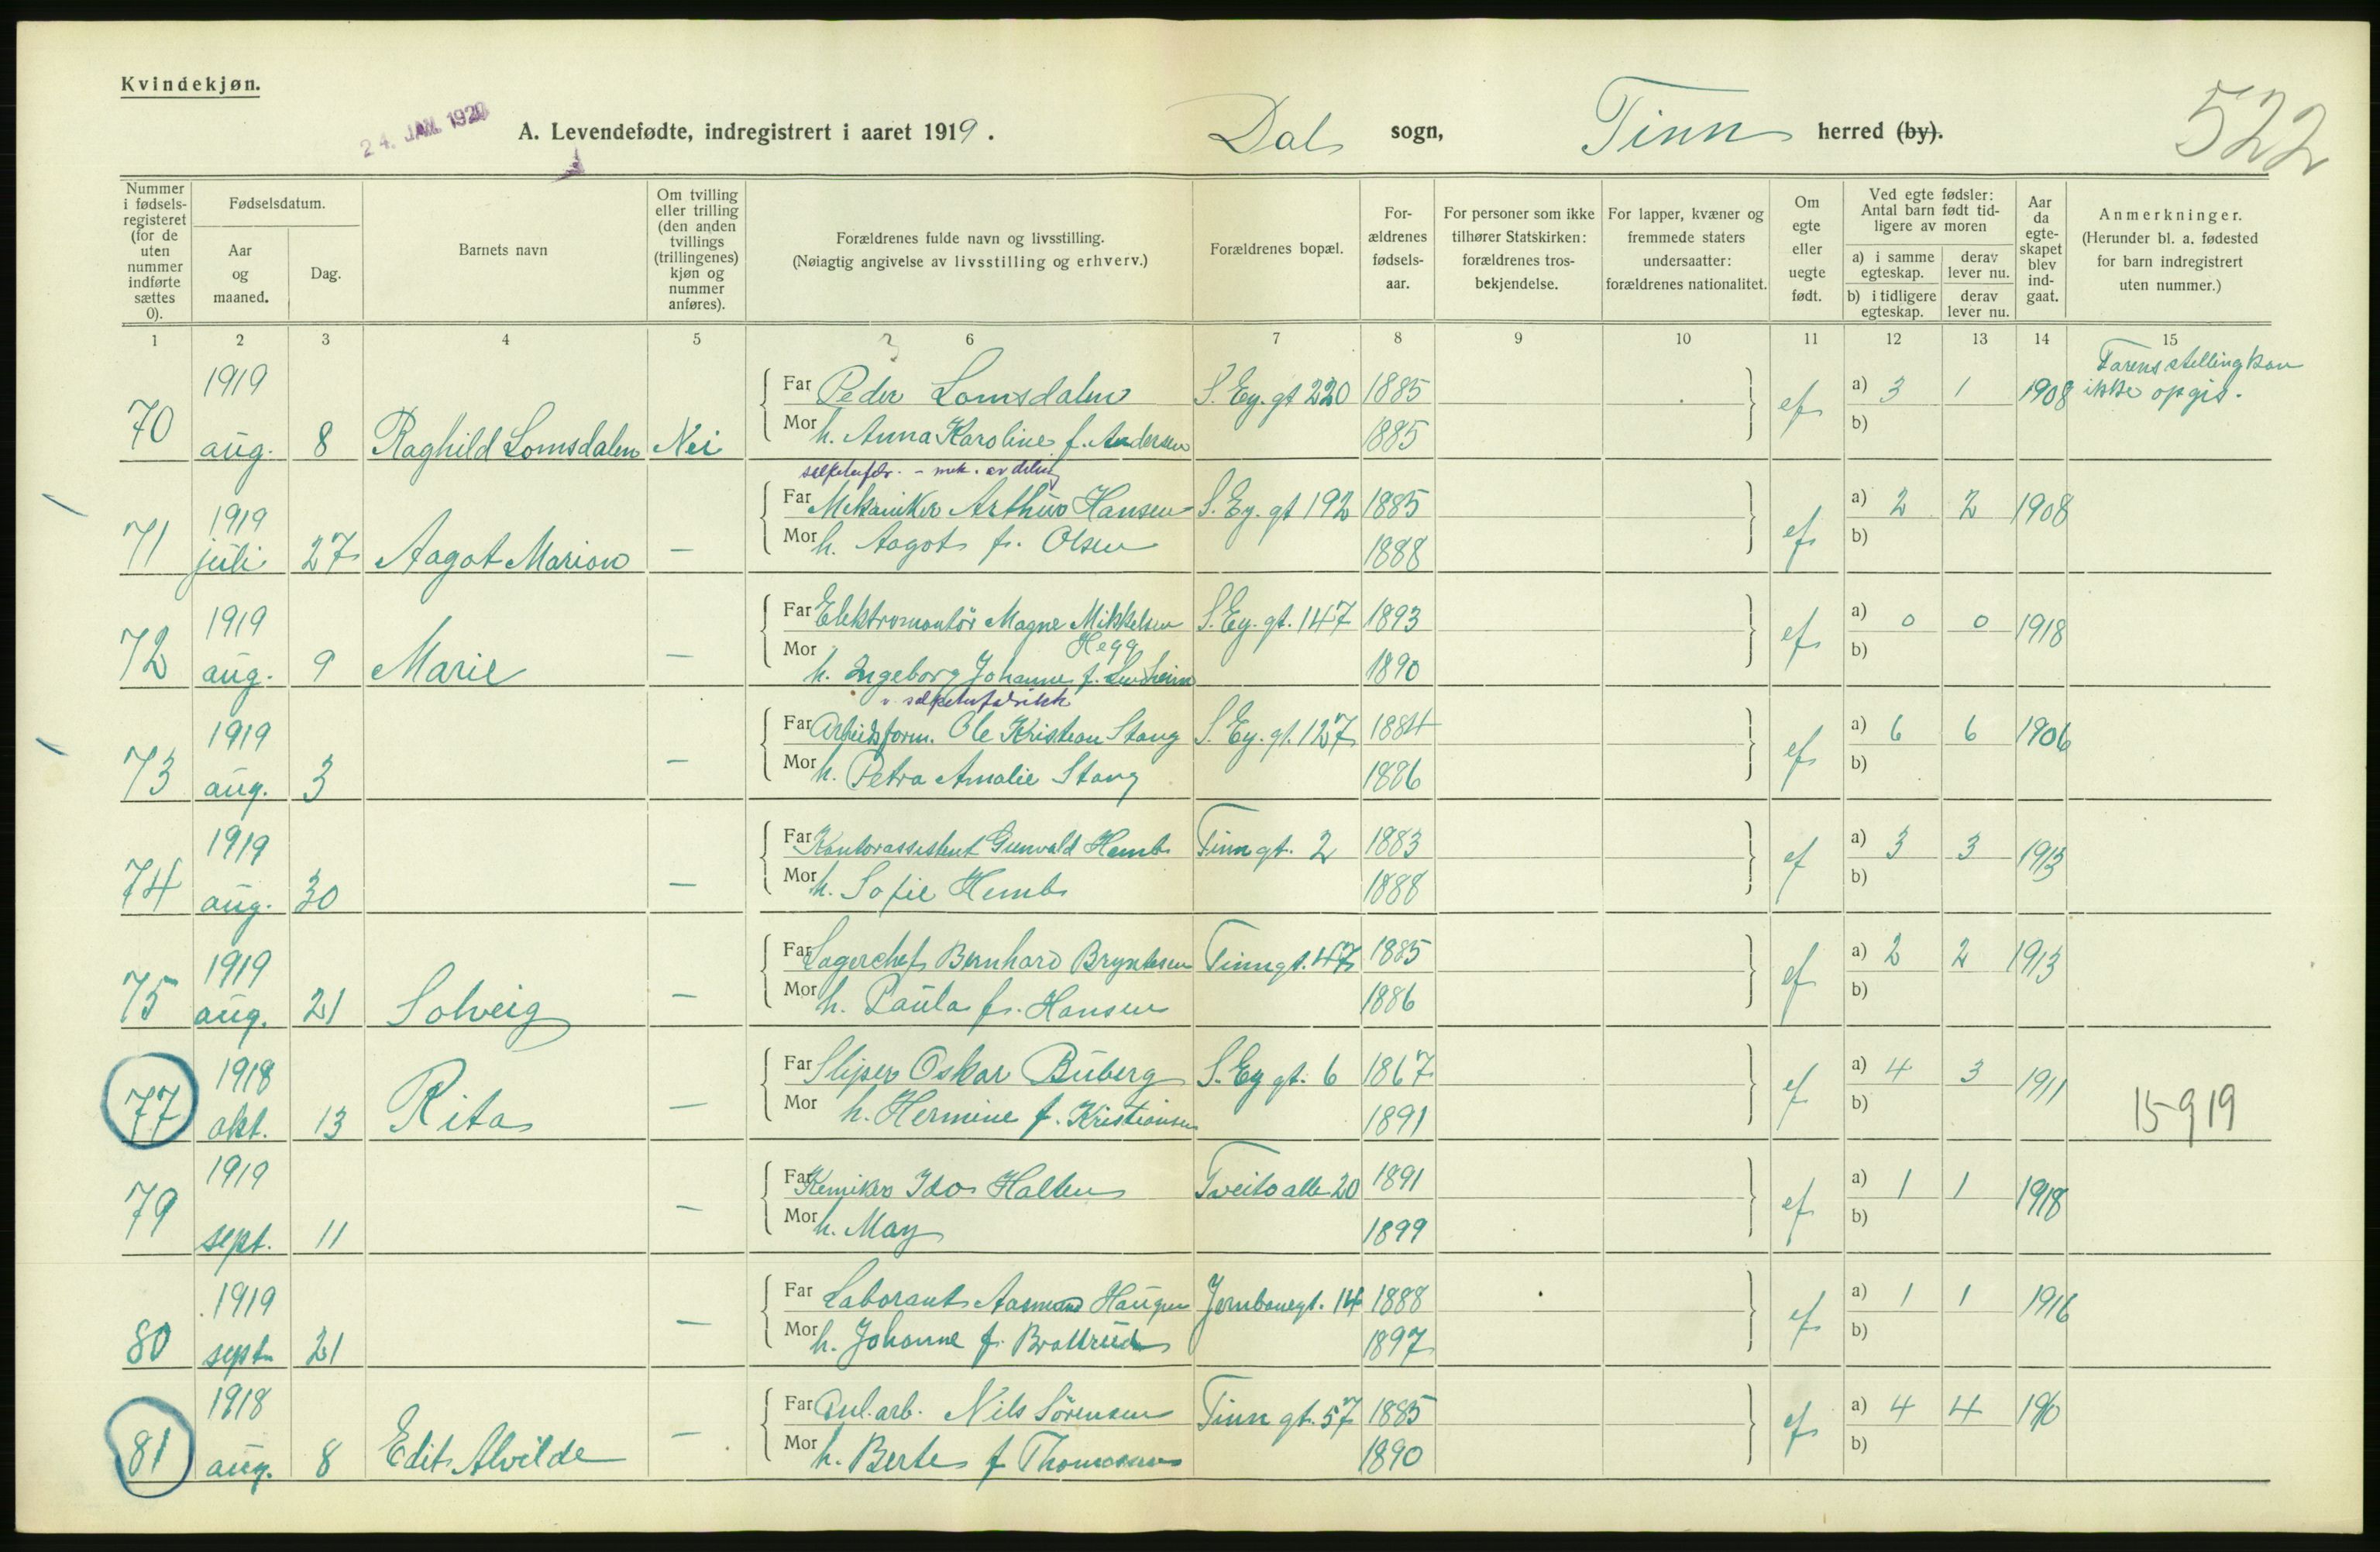 Kvindekjøn.
24. JAN. 1920
A. Levendefødte, indregistrert i aaret 1919.
Dal sogn, Tinn herred (by).
522
Nummer i fødsels-registeret (for de uten nummer indførte sættes 0).
Fødselsdatum.
Aar og maaned.
Dag.
Barnets navn
Om tvilling eller trilling (den anden tvillings (trillingenes) kjøn og nummer anføres).
Forældrenes fulde navn og livsstilling.
(Nøiagtig angivelse av livsstilling og erhverv.)
Forældrenes bopæl.
For-ældrenes fødsels-aar.
For personer som ikke tilhører Statskirken: forældrenes tros-bekjendelse.
For lapper, kvæner og fremmede staters undersaatter: forældrenes nationalitet.
Om egte eller uegte født.
Ved egte fødsler: Antal barn født tid-ligere av moren
a) i samme egteskap.
derav lever nu.
b) i tidligere egteskap.
derav lever nu.
Aar da egte-skapet blev ind-gaat.
Anmerkninger.
(Herunder bl. a. fødested for barn indregistrert uten nummer.)
1 2 3 4 5 6 7 8 9 10 11 12 13 14 15
70 1919 aug. 8 Raghild Lomsdalen Nei
Far Peder Lomsdalen S. Ey. gt 220 1885 ef a) 3 1 1908 Farens stilling kan ikke opgis.
Mor h. Anna Karoline f. Andersen 1885 b)
salpeterfabr. - mek. avdeling
71 1919 juli 27 Aagot Marion —
Far Mekaniker Arthur Hansen S. Ey. gt 192 1885 ef a) 2 2 1908
Mor h. Aagot f. Olsen 1888 b)
72 1919 aug. 9 Marie —
Far Elektromontör Magne Mikkelsen Hegg S. Ey. gt. 147 1893 ef a) 0 0 1918
Mor h. Ingeborg Johanne f. 1890 b)
v. salpeterfabrikk
73 1919 aug. 3 —
Far Arbeidsform. Ole Kristian Stang S. Ey. gt. 127 1884 ef a) 6 6 1906
Mor h. Petra Amalie Stang 1886 b)
74 1919 aug. 30 —
Far Kontorassistent Gunvald Hemb Tinn gt. 2 1883 ef a) 3 3 1913
Mor h. Sofie Hemb 1888 b)
75 1919 aug. 21 Solveig —
Far Lagerchef Bernhard Bryntesen Tinngt. 47 1885 ef a) 2 2 1913
Mor h. Paula f. Hansen 1886 b)
77 1918 okt. 13 Rita —
Far Sliper Oskar Buberg S. Ey gt. 6 1867 ef a) 4 3 1911
Mor h. Hermine f. Kristiansen 1891 b) 15 9 19
79 1919 sept. 11 —
Far Kemiker Idar Halten Tveito alle 20 1891 ef a) 1 1 1918
Mor h. May 1899 b)
80 1919 sept. 21 —
Far Laborant Aasmund Haugen Jernbanegt. 14 1888 ef a) 1 1 1916
Mor h. Johanne f. Brattrud 1897 b)
81 1918 aug. 8 Edit Alvilde —
Far Anl. arb. Nils Sörensen Tinn gt. 57 1885 ef a) 4 4
Mor h. Berte f Thomassen 1890 b)